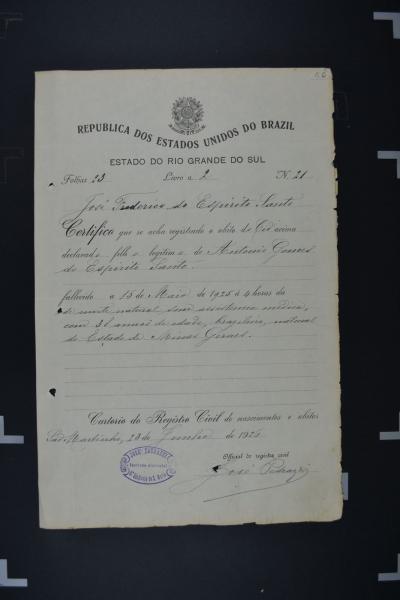 26
REPUBLICA DOS ESTADOS UNIDOS DO BRAZIL
ESTADO DO RIO GRANDE DO SUL
Folhas 23 Livro n. 2 N. 21
José Frederico do Espirito Santo
Certifico que se acha registrado o obito de acima
declarado filho legitimo de Antonio Gomes
do Espirito Santo
fallecido a 15 de Maio de 1925 á 4 horas da
de morte natural sem assistencia médica,
com annos de edade, brazileiro, natural
do Estado de Minas Geraes.
Cartorio do Registro Civil de nascimentos e obitos
São Martinho, 23 de Junho de 192
Official do registro civil
José
JOSÉ